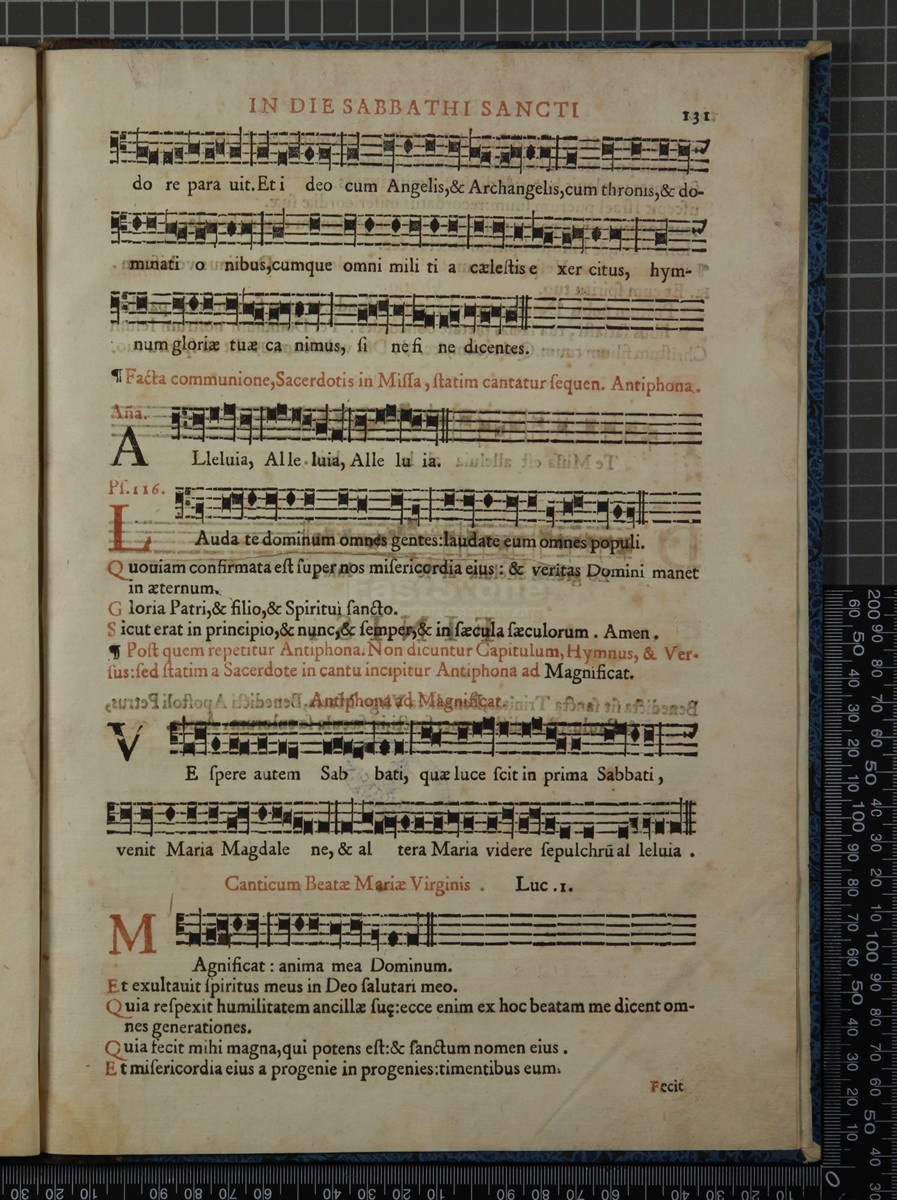 IN DIE SABBATHI SANCTI
131
do re para uit. Et i deo cum Angelis, & Archangelis, cum thronis, & do-
minati o nibus, cumque omni mili ti a cæleſtis e xer citus, hym-
num gloriæ tuæ ca nimus, ſi ne fi ne dicentes.
¶ Facta communione, Sacerdotis in Miſſa, ſtatim cantatur ſequen. Antiphona.
Aña.
A Lleluia, Al le luia, Alle lu ia.
Pſ. 116.
L Auda te dominum omnes gentes: laudate eum omnes populi.
Quouiam confirmata eſt ſuper nos miſericordia eius: & veritas Domini manet
in æternum.
Gloria Patri, & filio, & Spiritui ſancto.
Sicut erat in principio, & nunc, & ſemper, & in ſæcula ſæculorum. Amen.
¶ Poſt quem repetitur Antiphona. Non dicuntur Capitulum, Hymnus, & Ver-
ſus: ſed ſtatim a Sacerdote in cantu incipitur Antiphona ad Magnificat.
Antiphona ad Magnificat.
V E ſpere autem Sab bati, quæ luce ſcit in prima Sabbati,
venit Maria Magdale ne, & al tera Maria videre ſepulchrū al leluia.
Canticum Beatæ Mariæ Virginis. Luc. 1.
M Agnificat: anima mea Dominum.
Et exultauit ſpiritus meus in Deo ſalutari meo.
Quia reſpexit humilitatem ancillæ ſuę: ecce enim ex hoc beatam me dicent om-
nes generationes.
Quia fecit mihi magna, qui potens eſt: & ſanctum nomen eius.
Et miſericordia eius a progenie in progenies: timentibus eum.
Fecit